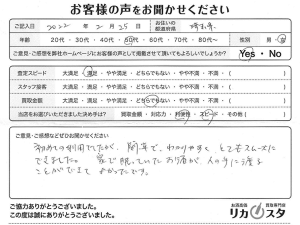 お客様の声をお聞かせください
ご記入日 2022 年 2 月 25 日 お住いの都道府県 埼玉県
年齢 20代・30代・40代・50代・60代・70代・80代〜 性別 男・女
ご意見・ご感想を弊社ホームページにお客様の声として掲載させて頂いてもよろしいでしょうか? Yes・No
査定スピード 大満足・満足・やや満足・どちらでもない・やや不満・不満・( )
スタッフ接客 大満足・満足・やや満足・どちらでもない・やや不満・不満・( )
買取金額 大満足・満足・やや満足・どちらでもない・やや不満・不満・( )
当店をお選びいただきました決め手は? 買取金額・対応力・利便性・スピード・その他( )
ご意見・ご感想などぜひお聞かせください
初めての利用でしたが、簡単で、わかりやすく、とてもスムーズに
できました。家で眠っていたお酒が、人の手に渡る
ことができて よかったです。
ご協力ありがとうございました。
この度は誠にありがとうございました。
お酒高価買取専門店
リカスタ